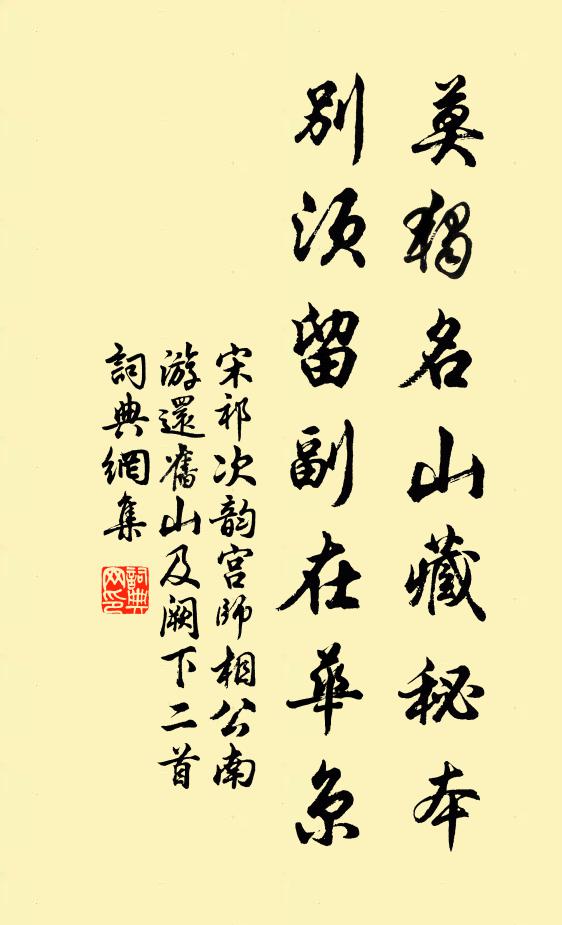 莫獨名山藏秘本
別須留副在華京
宋祁次韵宫師相公南
游還舊山及阙下二首
詞典網集
詞典
网印